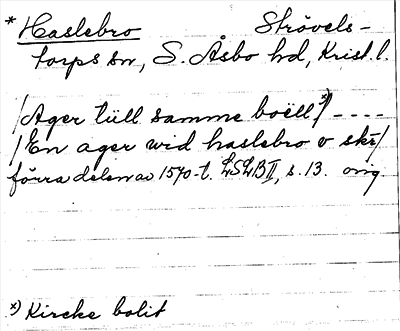 * Haslebro Strövels-
torps sn, S. Åsbo hd, Krist. l.
/Ager tüll samme boëll *)/ ----
/En ager wid haslebro v skr/
förra delen av 1570-t. LSLB II, s. 13. orig.
*) Kircke bolit